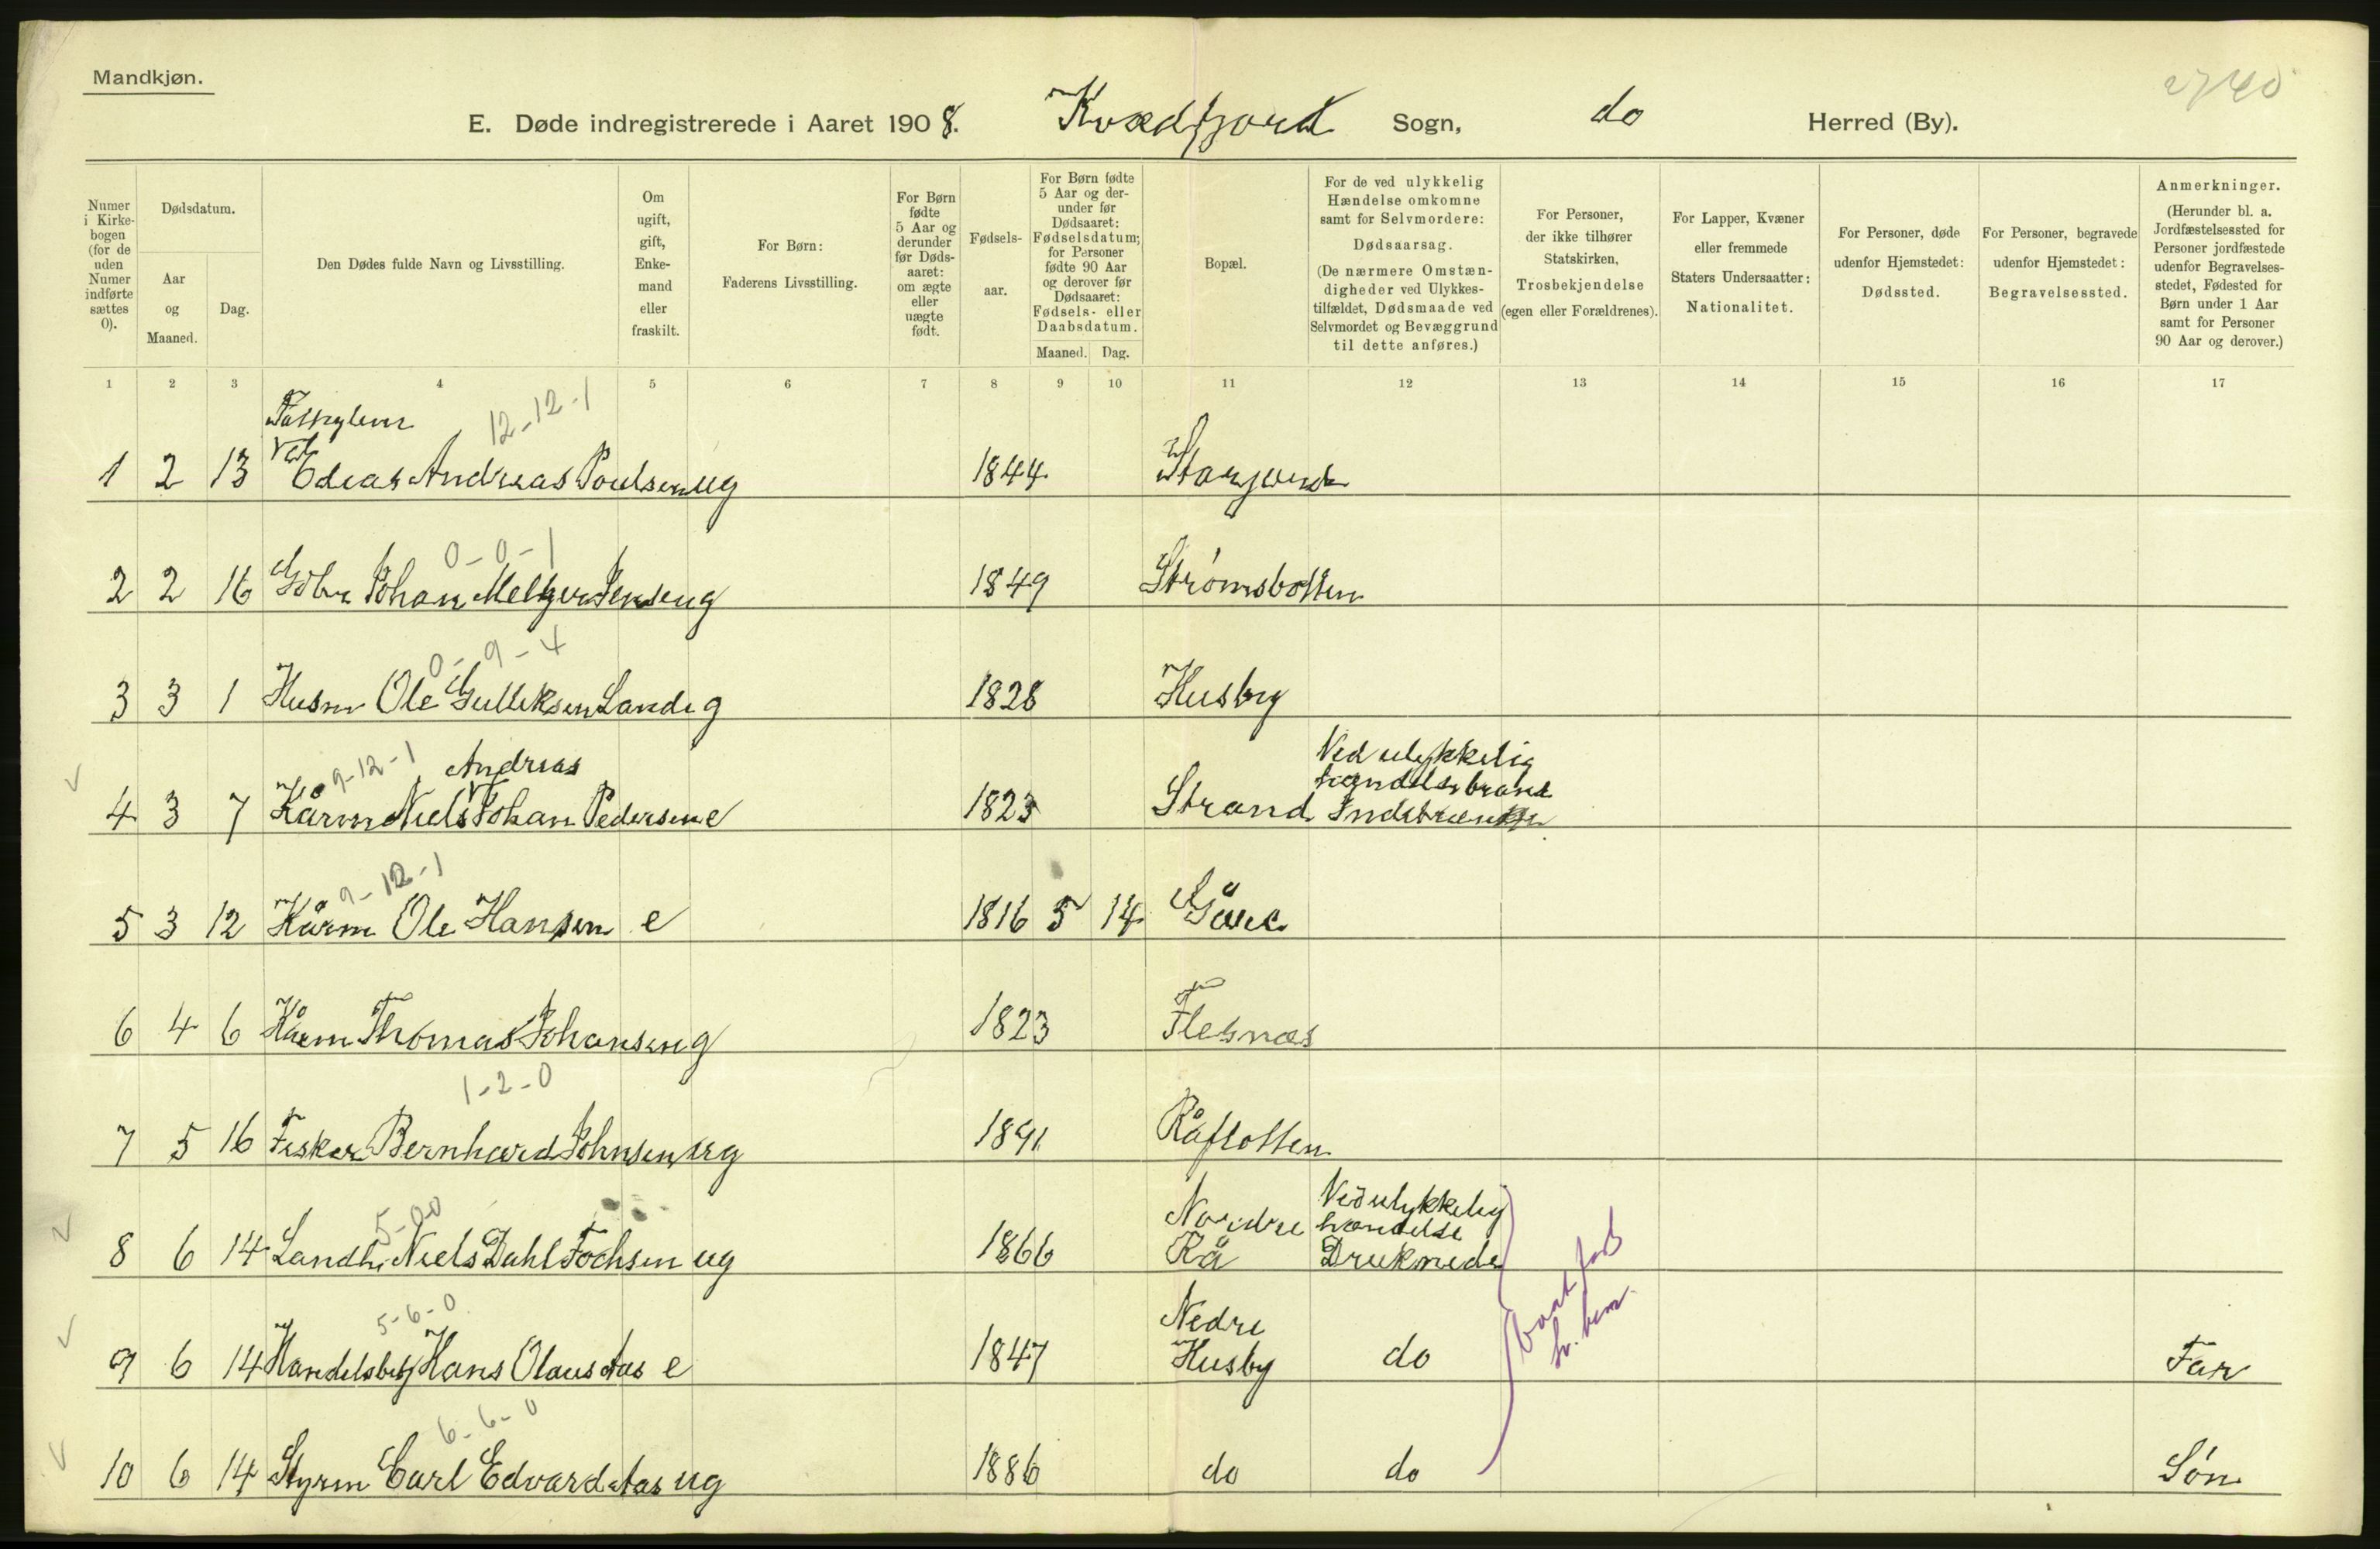 Mandkjøn.
E. Døde indregistrerede i Aaret 1908. Kvædfjord Sogn, do Herred (By).
Numer i Kirkebogen (for de uden Numer indførte sættes 0).
Dødsdatum.
Aar og Maaned.
Dag.
Den Dødes fulde Navn og Livsstilling.
Om ugift, gift, Enkemand eller fraskilt.
For Børn: Faderens Livsstilling.
For Børn fødte 5 Aar og derunder før Dødsaaret: om ægte eller uægte født.
Fødselsaar.
For Børn fødte 5 Aar og derunder før Dødsaaret: Fødselsdatum; for Personer fødte 90 Aar og derover før Dødsaaret: Fødsels- eller Daabsdatum.
Maaned. Dag.
Bopæl.
For de ved ulykkelig Hændelse omkomne samt for Selvmordere: Dødsaarsag. (De nærmere Omstændigheder ved Ulykkestilfældet, Dødsmaade ved Selvmordet og Bevæggrund til dette anføres.)
For Personer, der ikke tilhører Statskirken, Trosbekjendelse (egen eller Forældrenes).
For Lapper, Kvæner eller fremmede Staters Undersaatter: Nationalitet.
For Personer, døde udenfor Hjemstedet: Dødssted.
For Personer, begravede udenfor Hjemstedet: Begravelsessted.
Anmerkninger. (Herunder bl. a. Jordfæstelsessted for Personer jordfæstede udenfor Begravelsesstedet, Fødested for Børn under 1 Aar samt for Personer 90 Aar og derover.)
1 2 3 4 5 6 7 8 9 10 11 12 13 14 15 16 17
12-12-1
1 2 13 Edeas Andreas Poulsen ug 1844
0-0-1
2 2 16 Johan Jensen g 1849 Strømsbotten
0-9-4
3 3 1 Husm Ole Gulliksen Lande g 1828 Husby
9-12-1 Andreas Ved ulykkelig
4 3 7 Kårm Niels Johan Pedersen e 1823 Strand
9-12-1
5 3 12 Kårm Ole Hansen e 1816 5 14
6 4 6 Kårm Thomas Johansen g 1823 Flesnæs
1-2-0
7 5 16 Fisker Bernhard Johnsen ug 1891
5-00 Nordre Ved ulykkelig hændelse
8 6 14 Landh. Niels Dahl Fochsen ug 1866 Rå Druknede
5-6-0 Nedre
9 6 14 Handelsbetj Hans Olaus Aas e 1847 Husby do Far
6-6-0
10 6 14 Styrm Carl Edvard Aas ug 1886 do do Søn